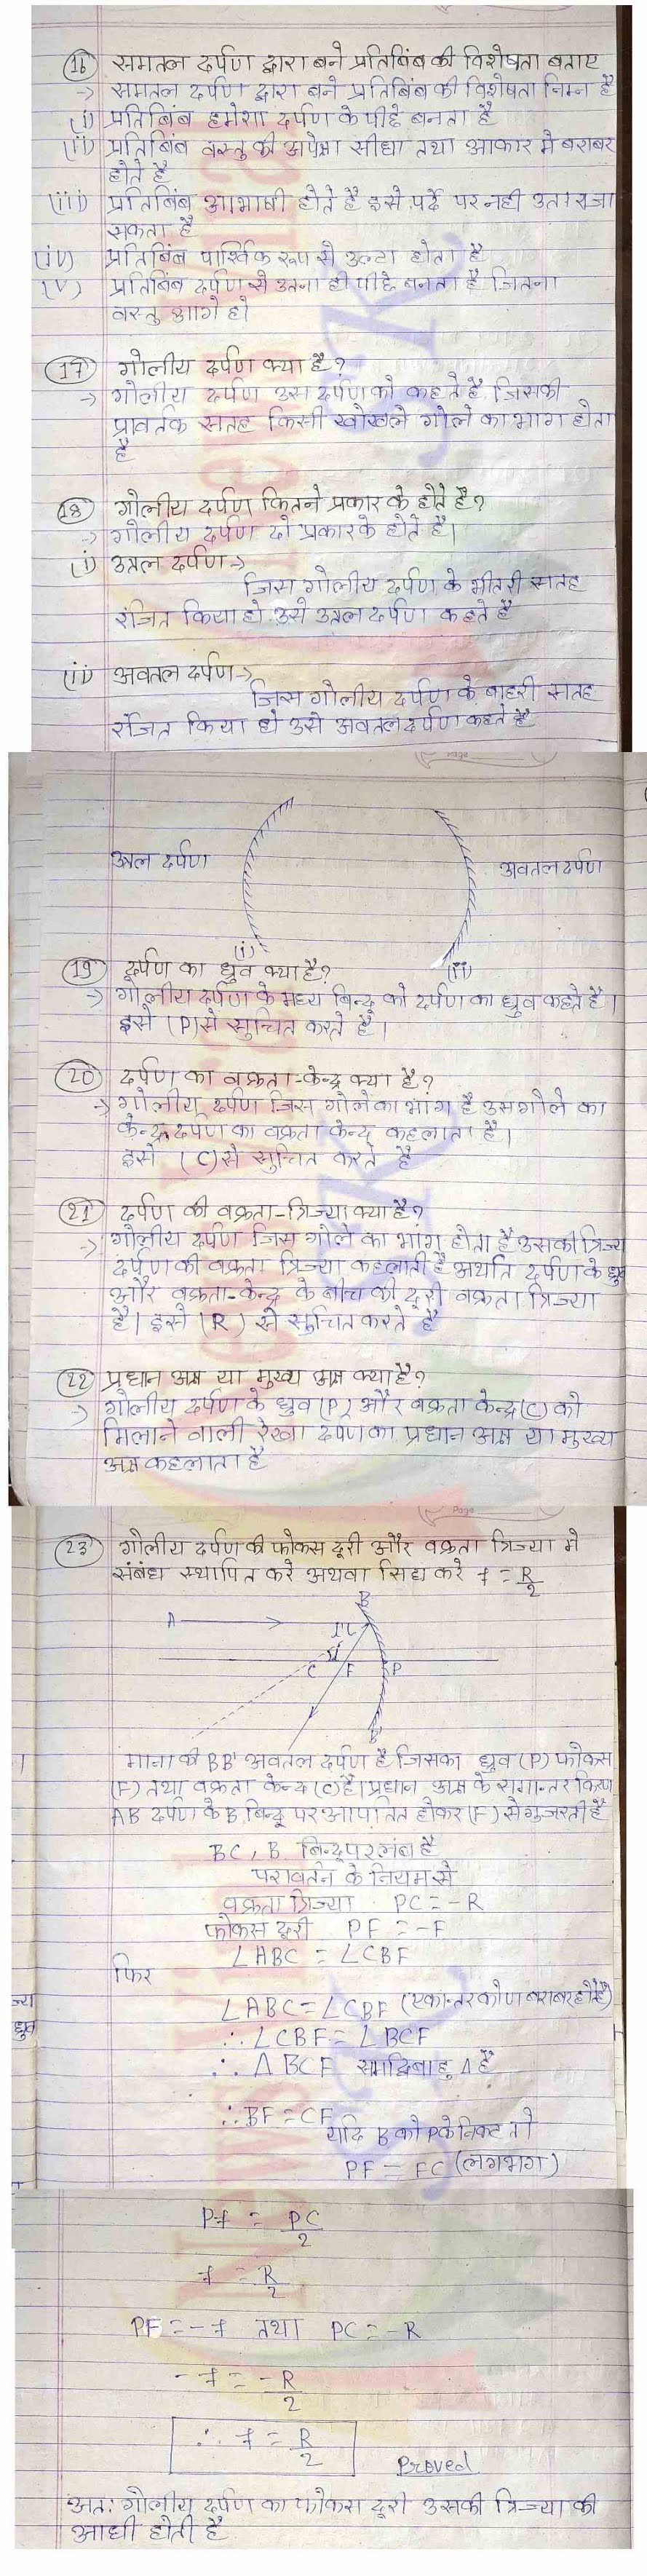 (16) समतल दर्पण द्वारा बने प्रतिबिंब की विशेषता बताए
-> समतल दर्पण द्वारा बने प्रतिबिंब की विशेषता निम्न है
(i) प्रतिबिंब हमेशा दर्पण के पीछे बनता है
(ii) प्रतिबिंब वस्तु की अपेक्षा सीधा तथा आकार मे बराबर
होते है
(iii) प्रतिबिंब आभाषी होते है इसे पर्दे पर नही उतारा जा
सकता है
(iv) प्रतिबिंब पार्श्विक रूप से उल्टा होता है
(v) प्रतिबिंब दर्पण से उतना ही पीछे बनता है जितना
वस्तु आगे हो
(17) गोलीय दर्पण क्या है?
-> गोलीय दर्पण उस दर्पण को कहते है जिसकी
प्रावर्तक सतह किसी खोखले गोले का भाग होता
है
(18) गोलीय दर्पण कितने प्रकार के होते है?
-> गोलीय दर्पण दो प्रकार के होते है।
(i) उत्तल दर्पण ->
जिस गोलीय दर्पण के भीतरी सतह
रंजित किया हो उसे उत्तल दर्पण कहते है
(ii) अवतल दर्पण ->
जिस गोलीय दर्पण के बाहरी सतह
रंजित किया हो उसे अवतल दर्पण कहते है
Page
उत्तल दर्पण
अवतल दर्पण
(i)
(ii)
(19) दर्पण का ध्रुव क्या है?
-> गोलीय दर्पण के मध्य बिन्दु को दर्पण का ध्रुव कहते है।
इसे (P) से सुचित करते है।
(20) दर्पण का वक्रता-केन्द्र क्या है?
-> गोलीय दर्पण जिस गोले का भाग है उस गोले का
केन्द्र दर्पण का वक्रता केन्द्र कहलाता है।
इसे (C) से सुचित करते है
(21) दर्पण की वक्रता-त्रिज्या क्या है?
-> गोलीय दर्पण जिस गोले का भाग होता है उसकी त्रिज्य
दर्पण की वक्रता त्रिज्या कहलाती है अर्थात दर्पण के ध्रुव
और वक्रता-केन्द्र के बीच की दूरी वक्रता त्रिज्या
है। इसे (R) से सुचित करते है
(22) प्रधान अक्ष या मुख्य अक्ष क्या है?
-> गोलीय दर्पण के ध्रुव (P) और वक्रता केन्द्र (C) को
मिलाने वाली रेखा दर्पण का प्रधान अक्ष या मुख्य
अक्ष कहलाता है
Page
(23) गोलीय दर्पण की फोकस दूरी और वक्रता त्रिज्या मे
संबंध स्थापित करे अथवा सिद्य करे f = R/2
B
A
C F P
B'
माना की BB' अवतल दर्पण है जिसका ध्रुव (P) फोकस
(F) तथा वक्रता केन्द्र (C) है। प्रधान अक्ष के समान्तर किरण
AB दर्पण के B बिन्दू पर आपतित होकर (F) से गुजरती है
BC, B बिन्दू पर लंब है
परावर्तन के नियम से
वक्रता त्रिज्या PC = -R
फोकस दूरी PF = -F
∠ABC = ∠CBF
फिर
∠ABC = ∠CBF (एकान्तर कोण बराबर होते है)
∴ ∠CBF = ∠BCF
∴ ∆BCF समद्विबाहु ∆ है
∴ BF = CF
यदि B को P के निकट तो
PF = FC (लगभग)
Pf = PC/2
f = R/2
PF = -f तथा PC = -R
-f = -R/2
∴ f = R/2
Proved
अत: गोलीय दर्पण का फोकस दूरी उसकी त्रिज्या की
आधी होती है